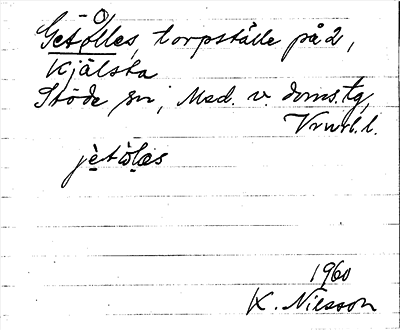 Getölles, torpställe på 2,
Kjälsta
Stöde sn, Med. v. doms.tg,
Vrnl. l.
jètö̀l̥æs
1960
K. Nilsson